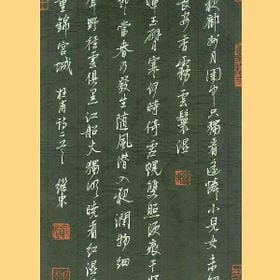 夜鄜州月閨中只獨看遙憐小兒女未
長安香霧雲鬟濕
輝玉臂寒何時倚虛幌雙照淚痕干
當春乃發生隨風潛入夜潤物細
聲野徑雲俱黑江船火獨明曉看紅濕
重錦官城 杜甫詩二首